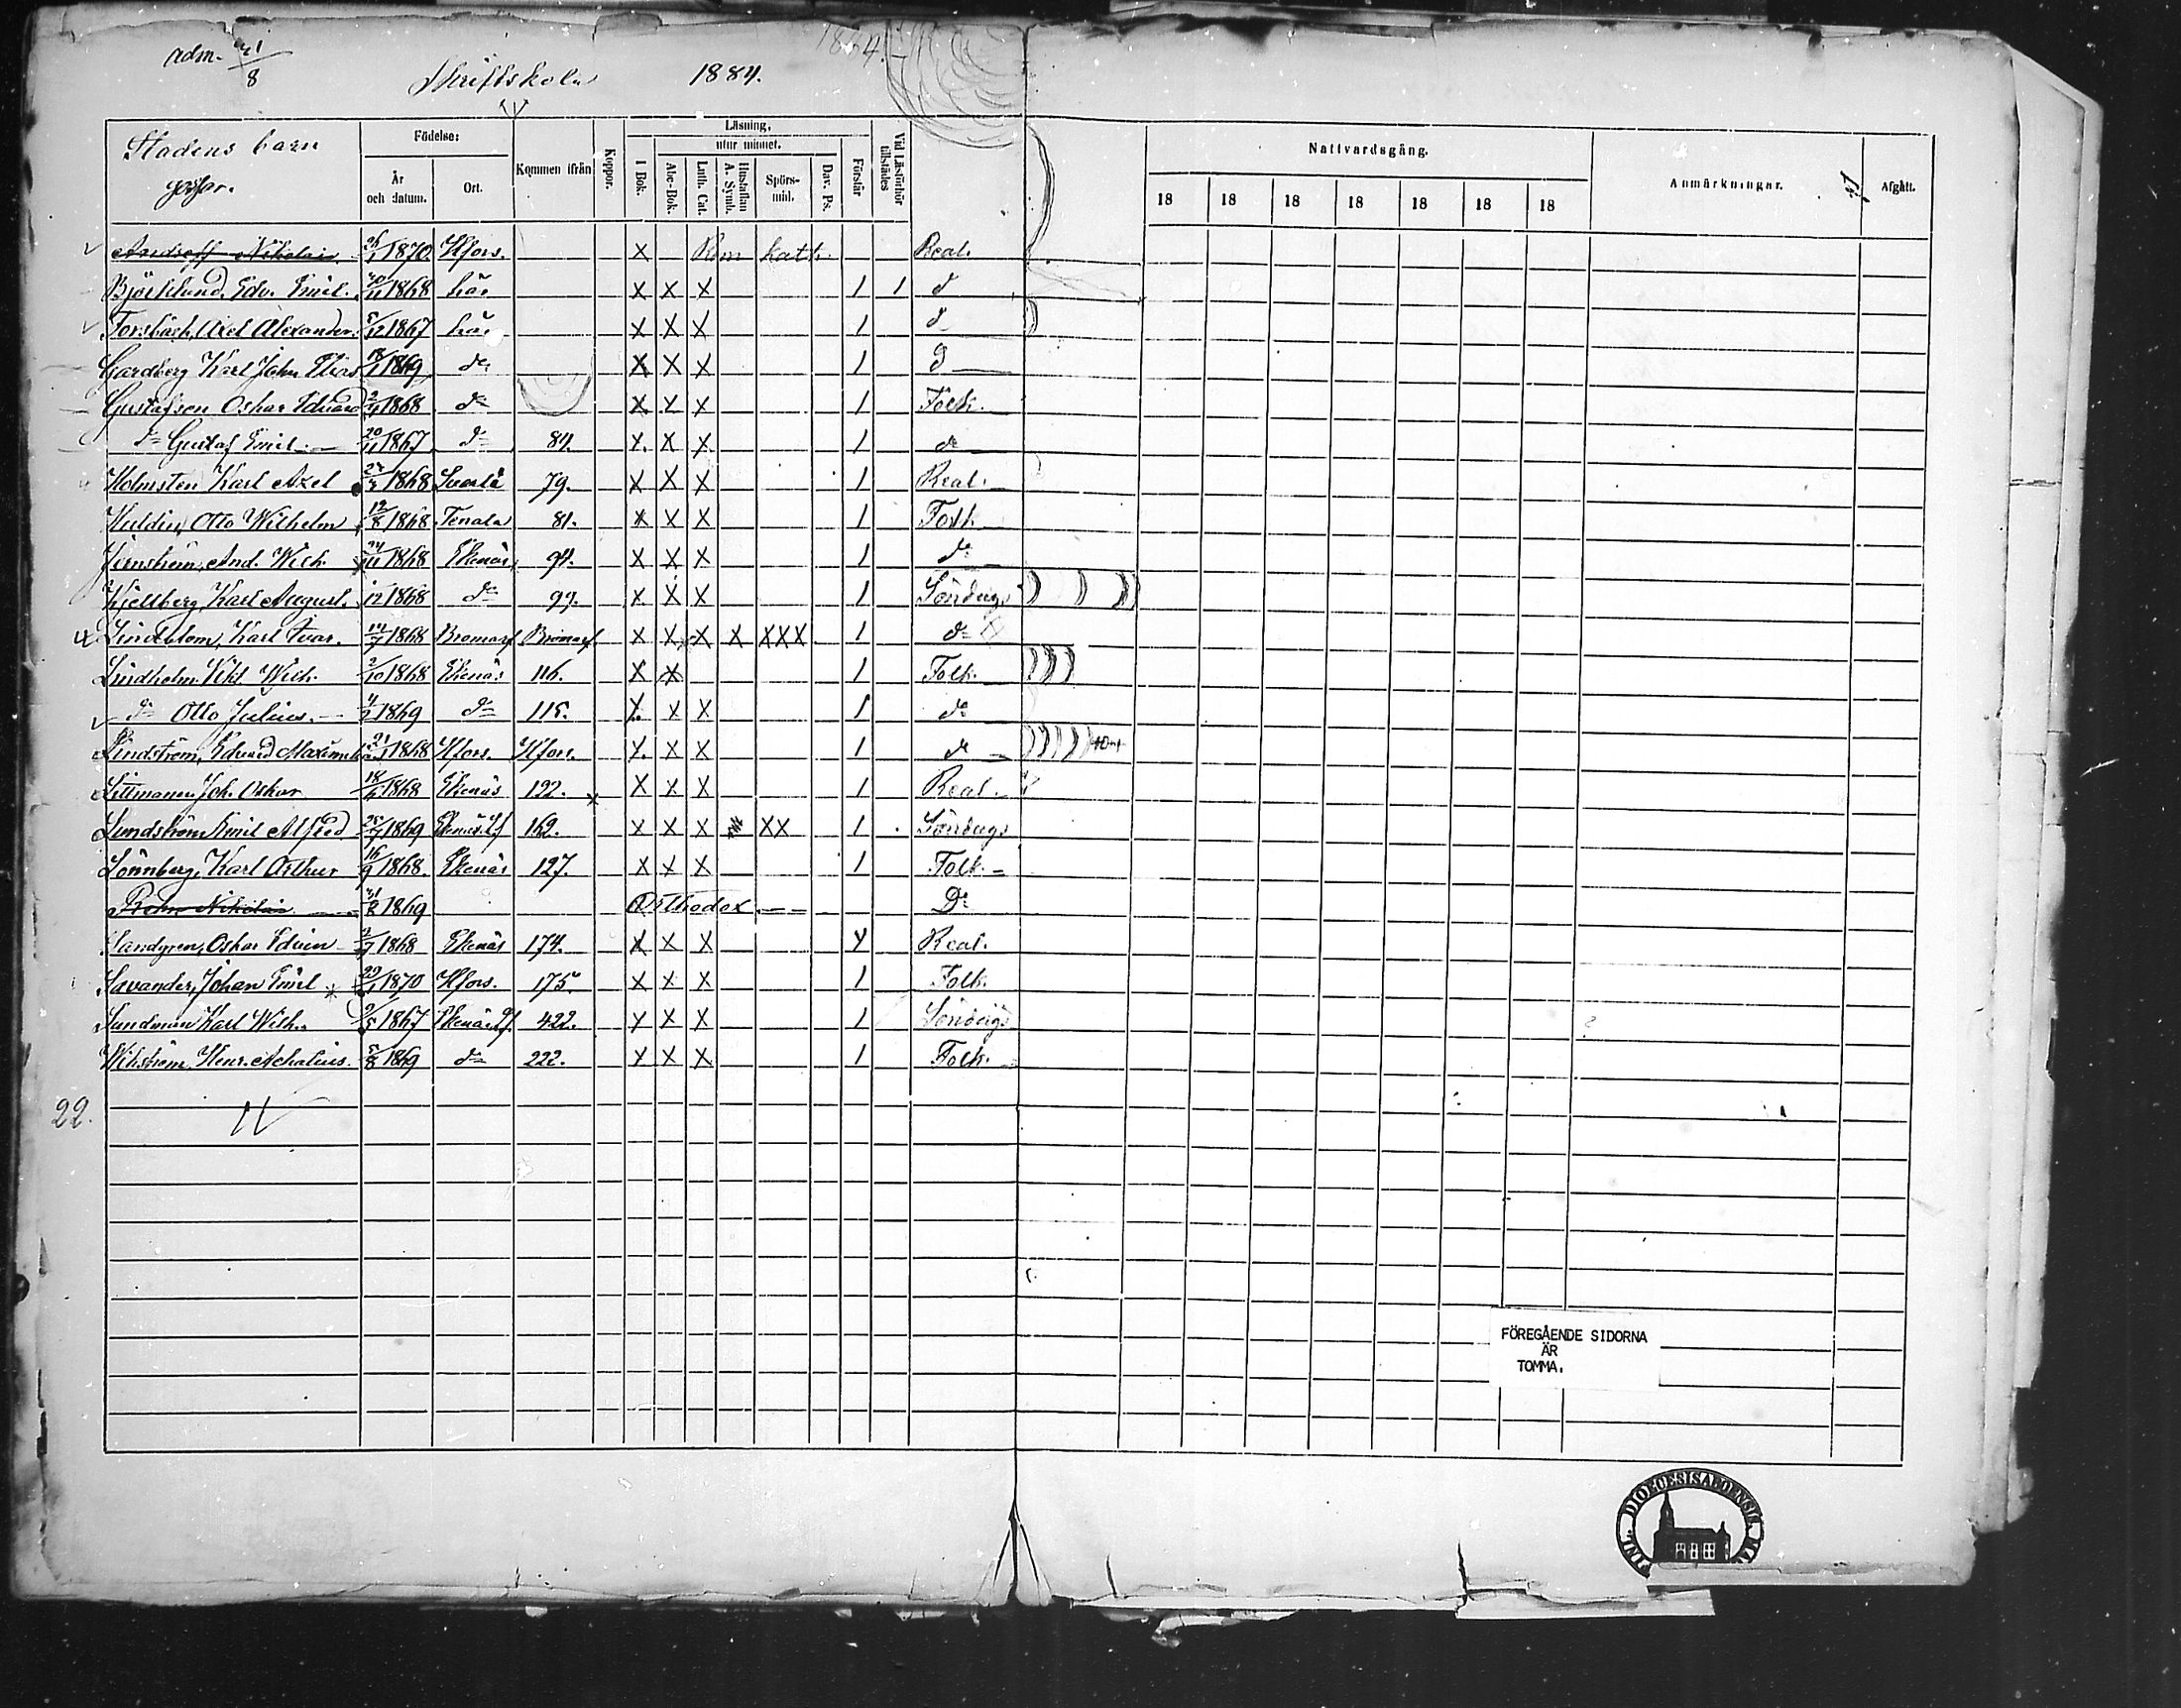 adm. 31/8 Skriftskola 1884. 1884.
Stadens barn
gossar.
Födelse:
År och datum. Ort.
Kommen ifrån
Koppor.
Läsning,
utur minnet.
I Bok. Abc-Bok. Luth. Cat. Hustaflan A. Symb. Spörs-mål. Dav. Ps. Förstår
Vid Läsförhör tillstädes
Nattvardsgång.
18 18 18 18 18 18 18
Anmärkningar.
Afgått.
Nikolai 1870 Hfors. X Rom kath. Real.
Björklund, Edv. Emil. 1868 här X X X 1 1 d
Forsbäck, Axel Alexander. 5/12 1867 här X X X 1 d
Gardberg Karl John Elias 1869 do X X X 1 d
Gustafson Oskar Eduard 1868 do X X X 1 Folk.
do Gustaf Emil 20/11 1867 do 84. X X X 1 do
Holmsten Karl Axel 1868 Svartå 79. X X X 1 Real.
Huldin, Otto Wilhelm 12/8 1868 Tenala 81. X X X 1 Folk
Jernström, And. Wilh. 1868 Ekenäs 94. X X X 1 do
Kjellberg, Karl August. 1868 do 99. X X X 1 Söndags
Lindblom, Karl Ivar. 1868 Bromarf Bromarf X X X X XXX 1 do
Lindholm Vikt. Wilh. 2/10 1868 Ekenäs 116. X X 1 Folk.
do Otto Julius. 1869 do 115. X X X 1 do
Lindström, Eduard 1868 Hfors. Hfors. X X X 1 do
Littmanen Joh. Oskar 1868 Ekenäs 192. X X X 1 Real.
Lundström Emil Alfred 1869 Ekenäs lf 162. X X X XX 1 Söndags
Lönnberg, Karl Arthur 16/9 1868. Ekenäs 127. X X X 1 Folk.
Nikolai 1869 Orthodox Do
Sandgren, Oskar Edvin 1868 Ekenäs 174. X X X Real.
Savander, Johan Emil 1870 Hfors. 175. X X X 1 Folk.
Sundman Karl Wilh. 1867 Ekenäs lf 422. X X X 1 Söndags
Wikström, Henr. Achatius. 5/8 1869 do 222. X X X 1 Folk.
22.
FÖREGÅENDE SIDORNA
ÄR
TOMMA.
FINL. DIOECESIS ABOENSIS.